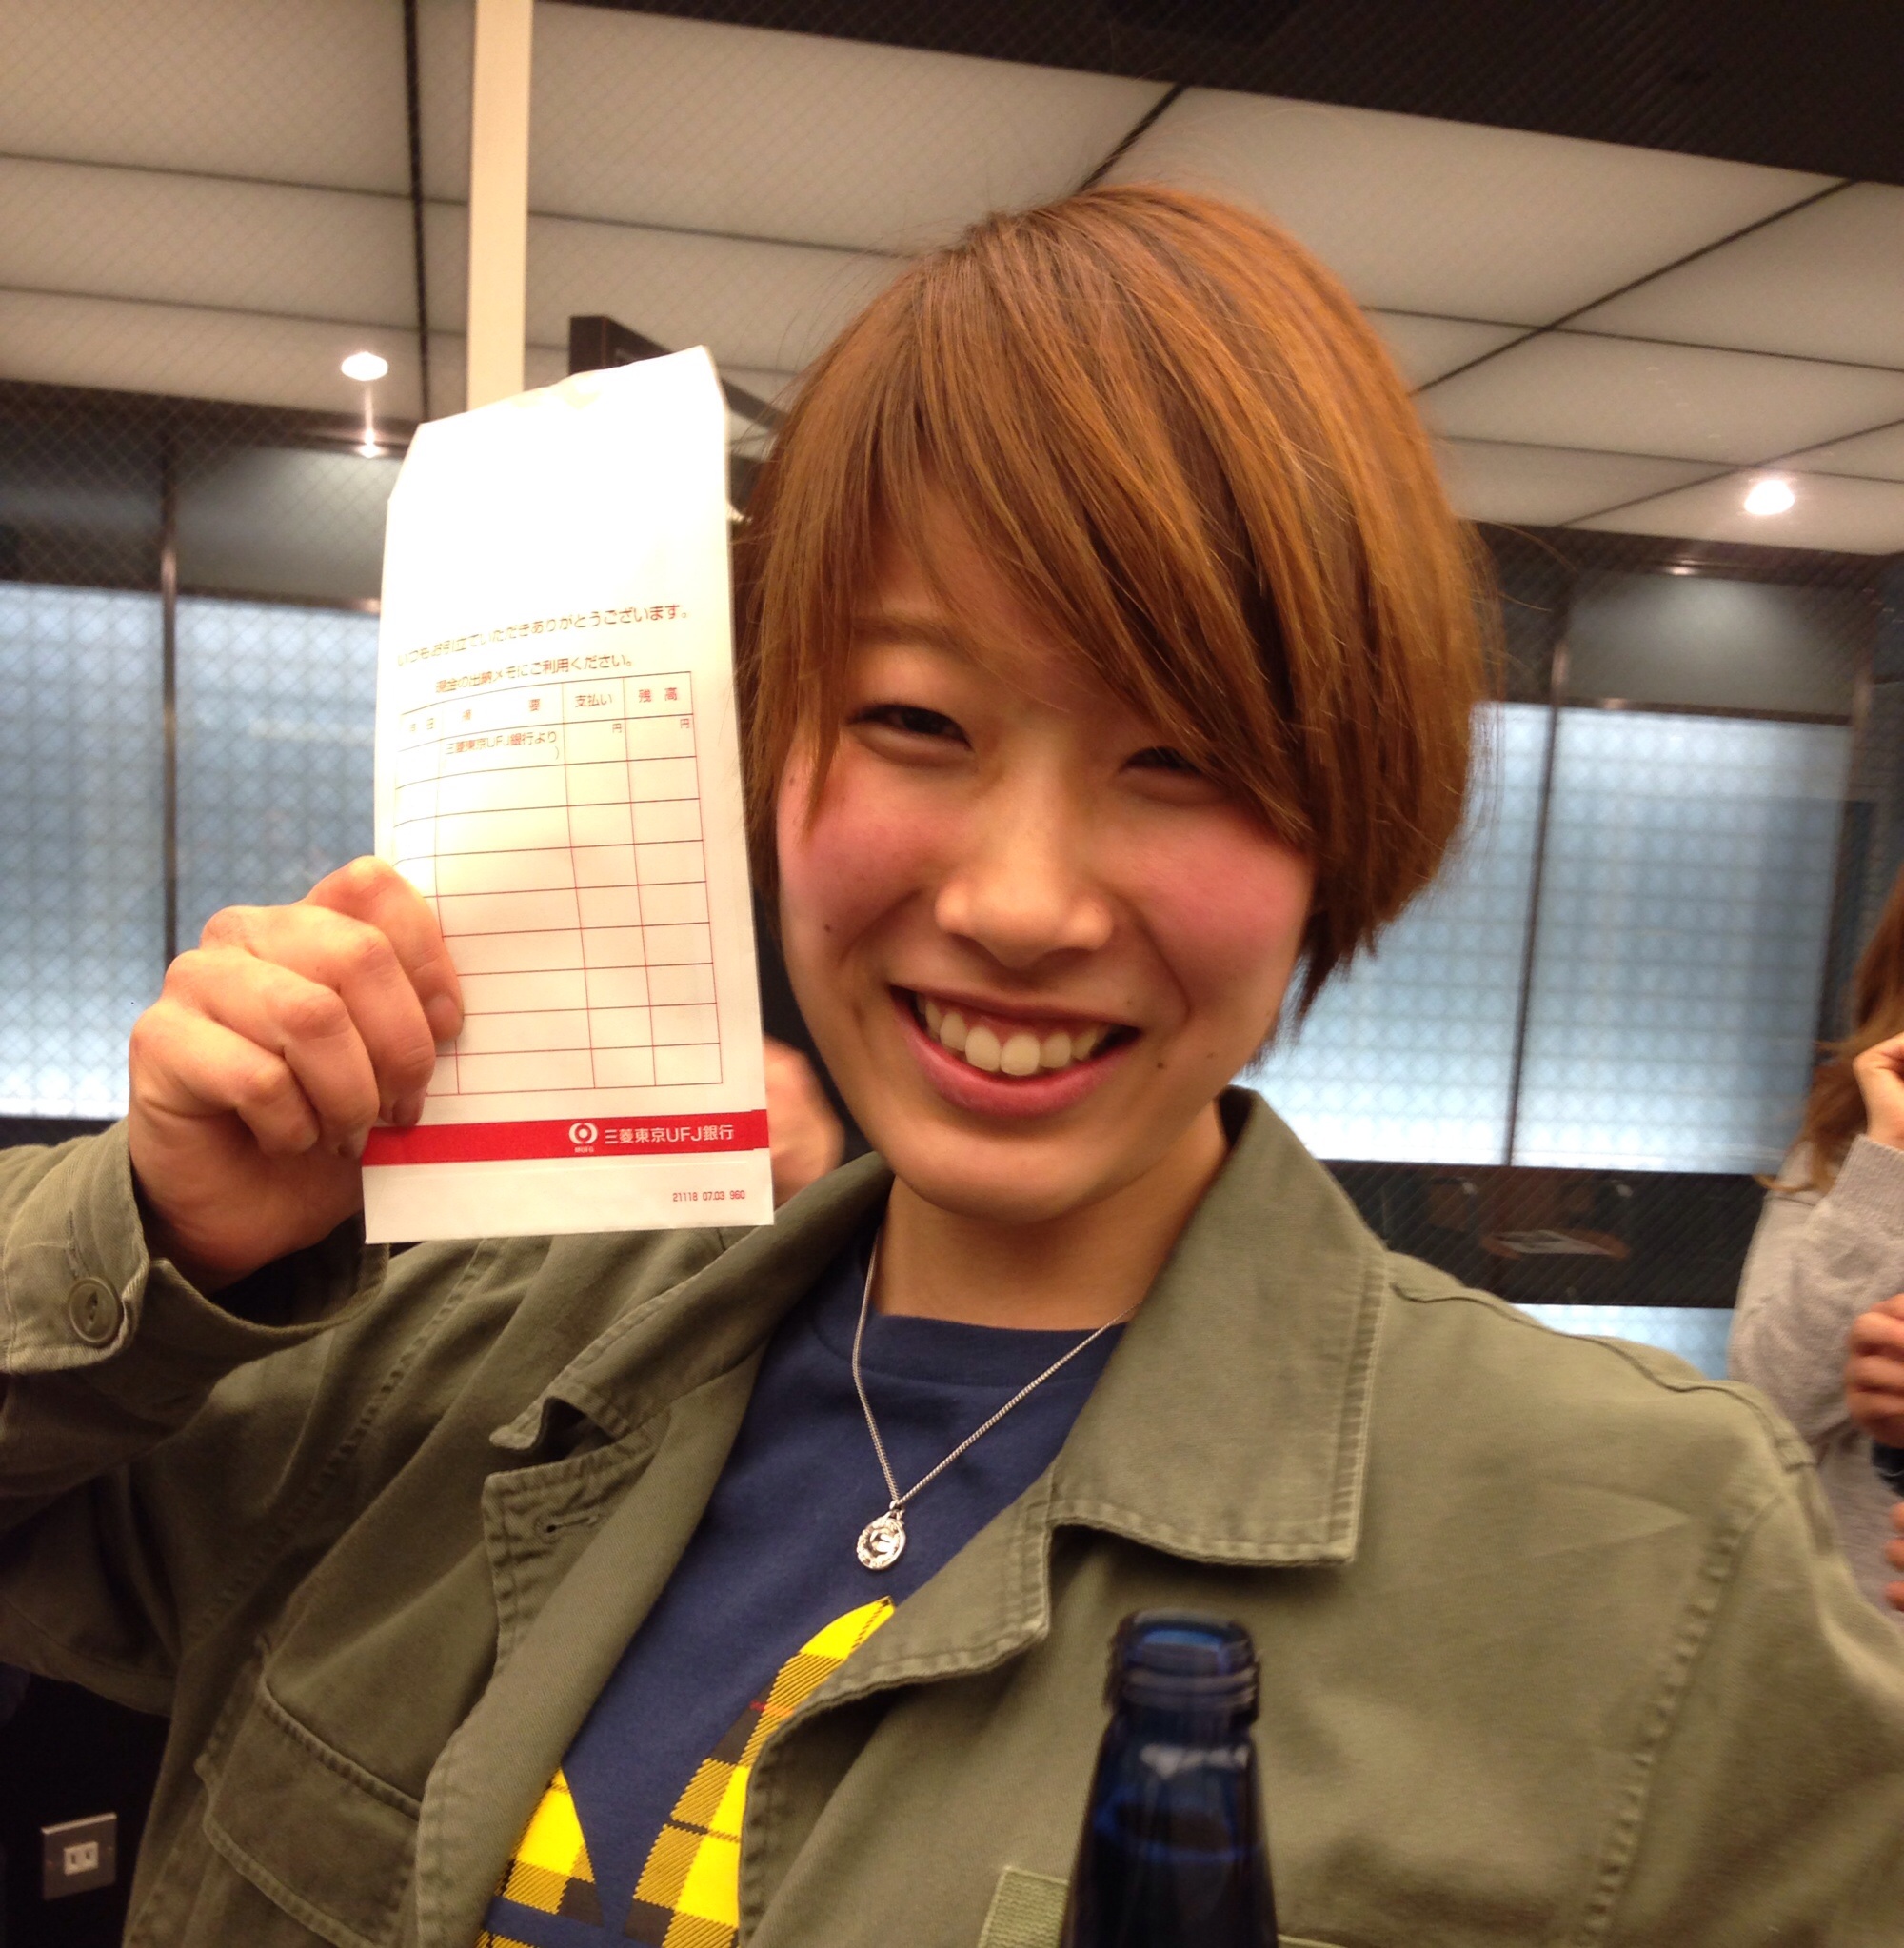 いつもお引立ていただきありがとうございます。
現金の出納メモにご利用ください。
月 日 摘 要 支払い 残 高
三菱東京UFJ銀行より 円 円
)
MUFG 三菱東京UFJ銀行
21118 07.03 960